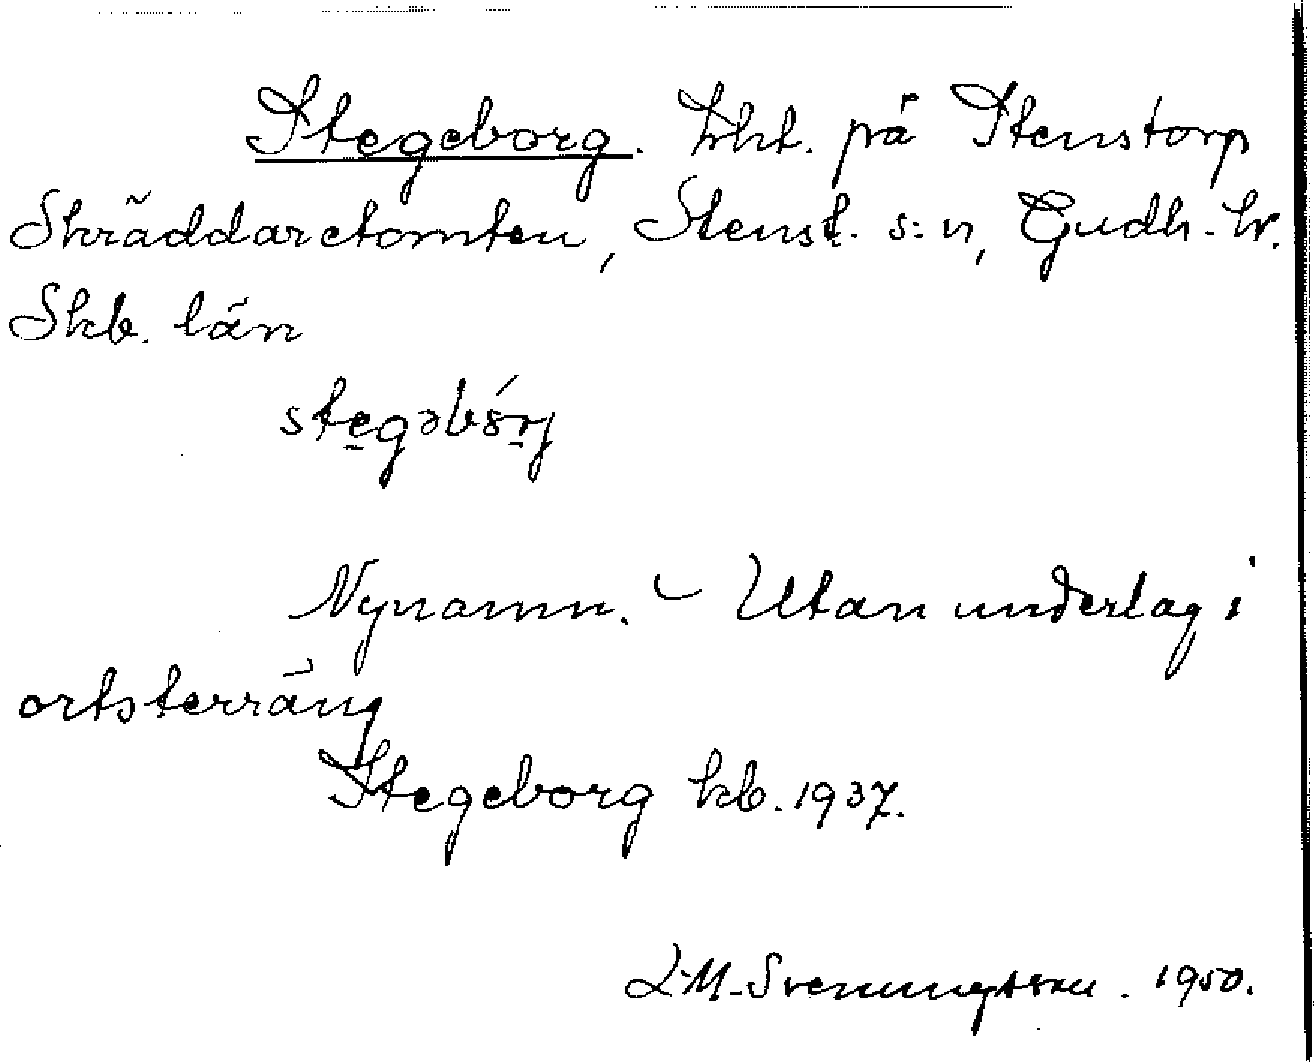 Stegeborg. Lht. på Stenstorp
Skräddaretomten, Stenst. s:n, Gudh. hr.
Skb. län
stegəbórj
Nynamn. – Utan underlag i
ortsterräng
Stegeborg kb. 1937.
L-M. Svenungsson. 1950.